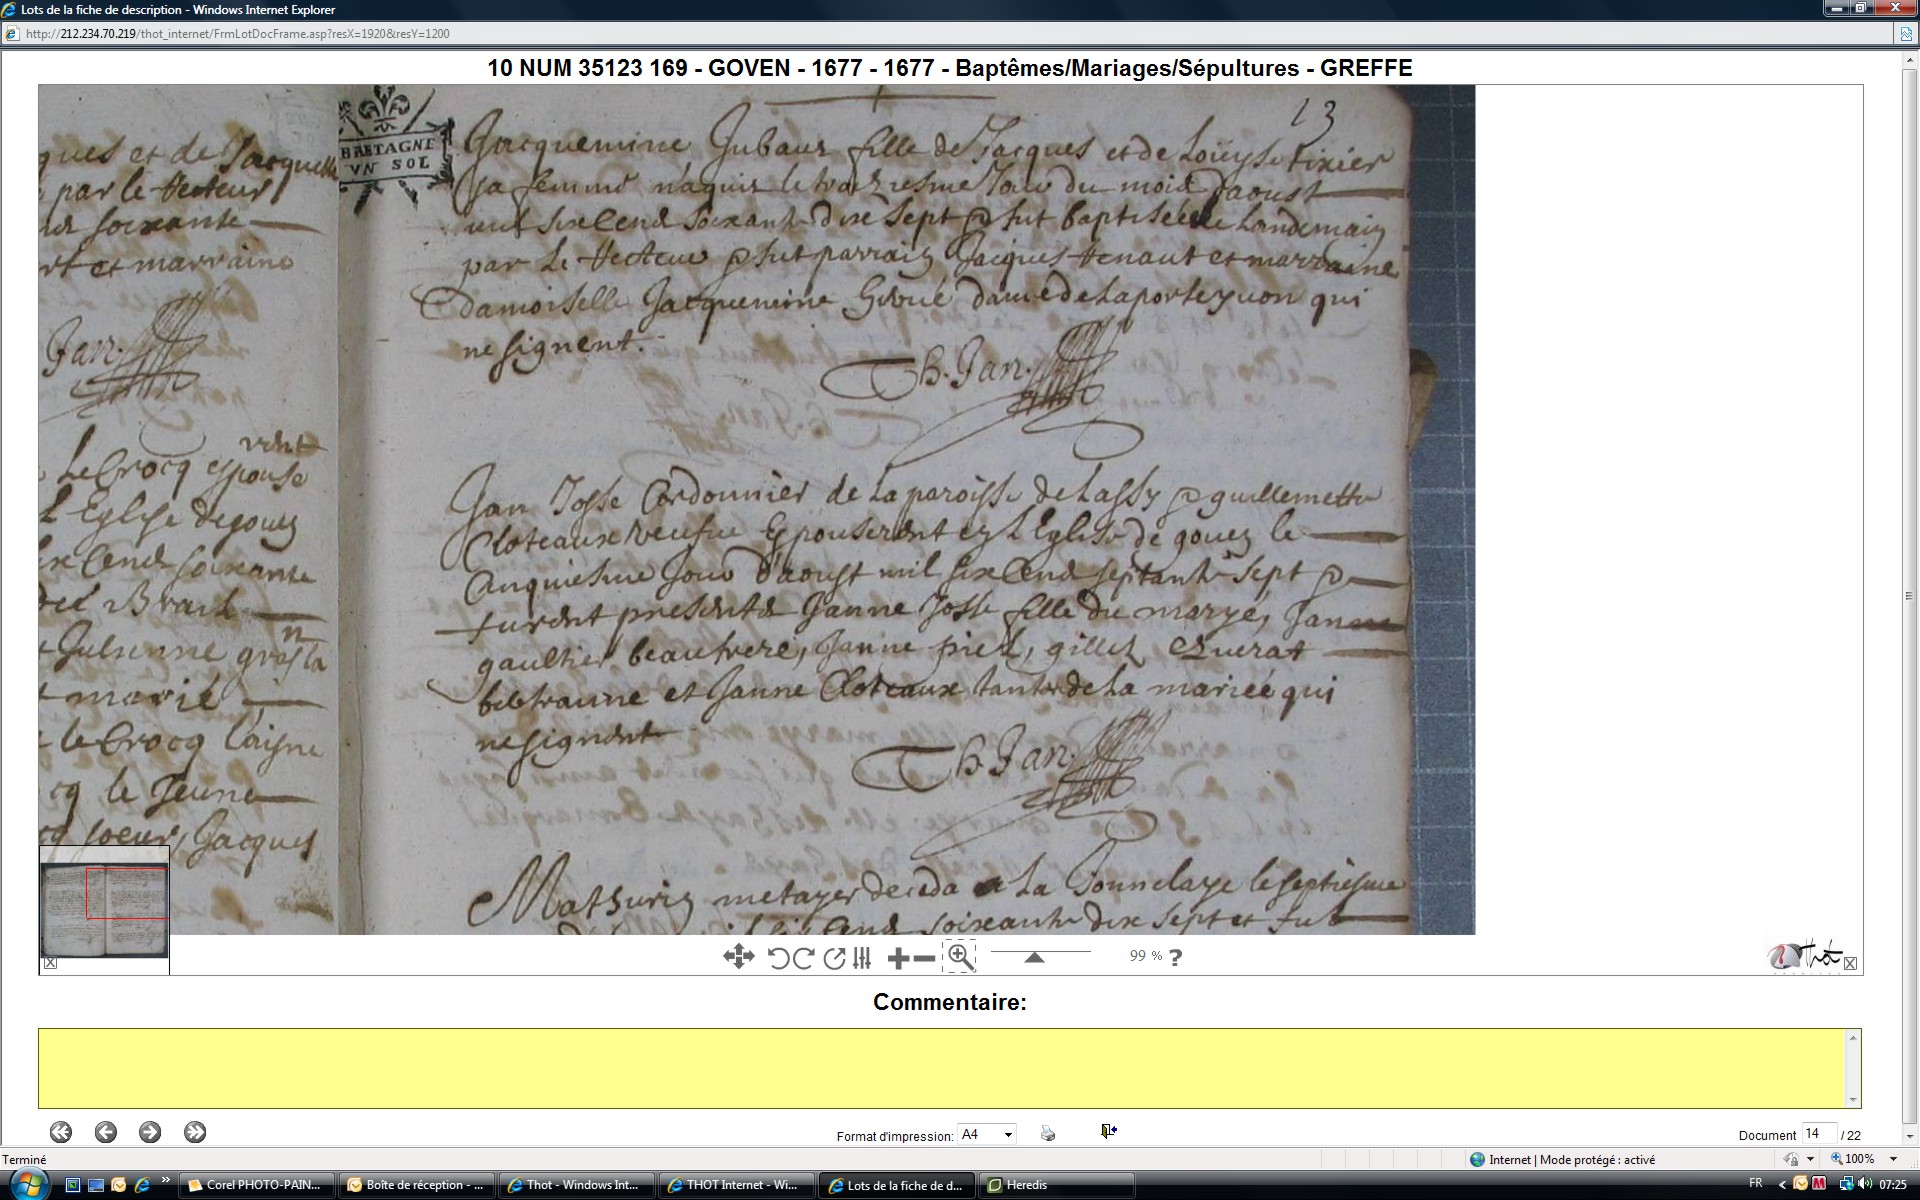 Lots de la fiche de description - Windows Internet Explorer
http://212.234.70.219/thot_internet/FrmLotDocFrame.asp?resX=1920&resY=1200
10 NUM 35123 169 - GOVEN - 1677 - 1677 - Baptêmes/Mariages/Sépultures - GREFFE
ques et de Jacquell
par le Recteur
soixante
et marraine
Jan
vent
Le Crocq espouse
L'Eglise de gouen
Cend soixante
Julienne
marié
le Crocq l'aisne
cq le Jeune
cq soeur, Jacques
BRETAGNE
VN SOL
13
Jacquemine Jubaux fille de Jacques et de Loüyse tixier
sa femme naquit le traeziesme Jour du mois daoust
mil six Cend soixante dix sept & fut baptisée le Landemain
par Le Recteur & fut parrain Jacques Renaut et marraine
damoiselle Jacquemine dame de Laporte qui
ne signent.
Th. Jan.
Jan Josse Cordonnier de La paroisse de Lassy & guillemette
Cloteaux veufue Espouserent en L'Eglise de gouen le
Cinquiesme Jour d'aoust mil six Cend septante sept &
furent presents Janne Josse fille du maryé, Janne
gaultier beaufrere, Janne piel, gilles
et Janne Cloteaux tante de La mariée qui
ne signent
Th. Jan.
Mathurin metayer deceda a La Bonnelaye le septiesme
Cend soixante dix sept et fut
99 % ?
Thot
Commentaire:
Format d'impression: A4
Document 14 / 22
Terminé
Internet | Mode protégé : activé
100%
Corel PHOTO-PAIN...
Boîte de réception - ...
Thot - Windows Int...
THOT Internet - Wi...
Lots de la fiche de d...
Heredis
FR
07:25